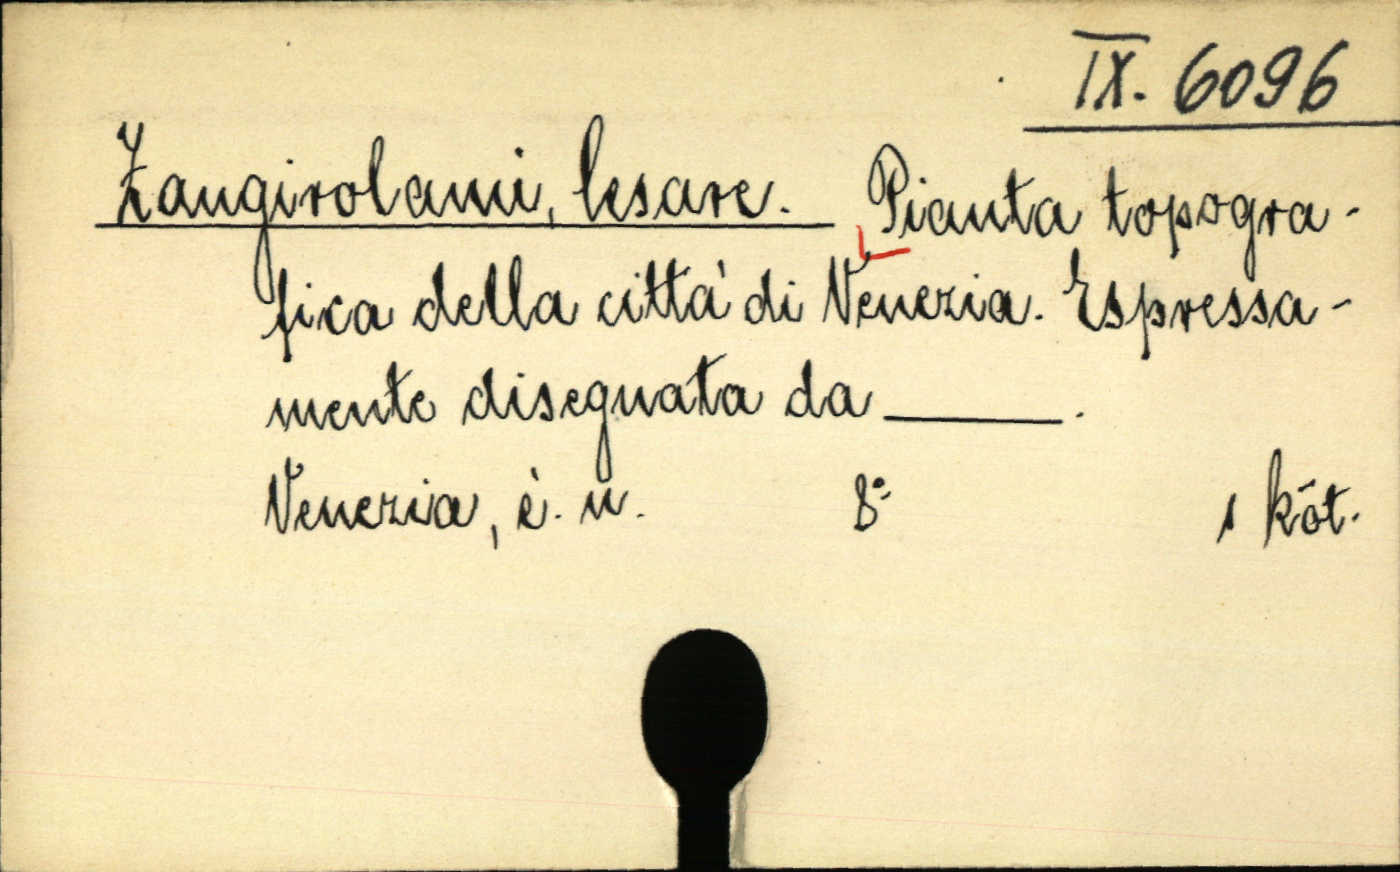 IX. 6096
Zangirolami, Cesare. Pianta topogra-
fica della cittá di Venezia. Espressa-
mente disegnata da ______.
Venezia, é. n. 8° 1 köt.